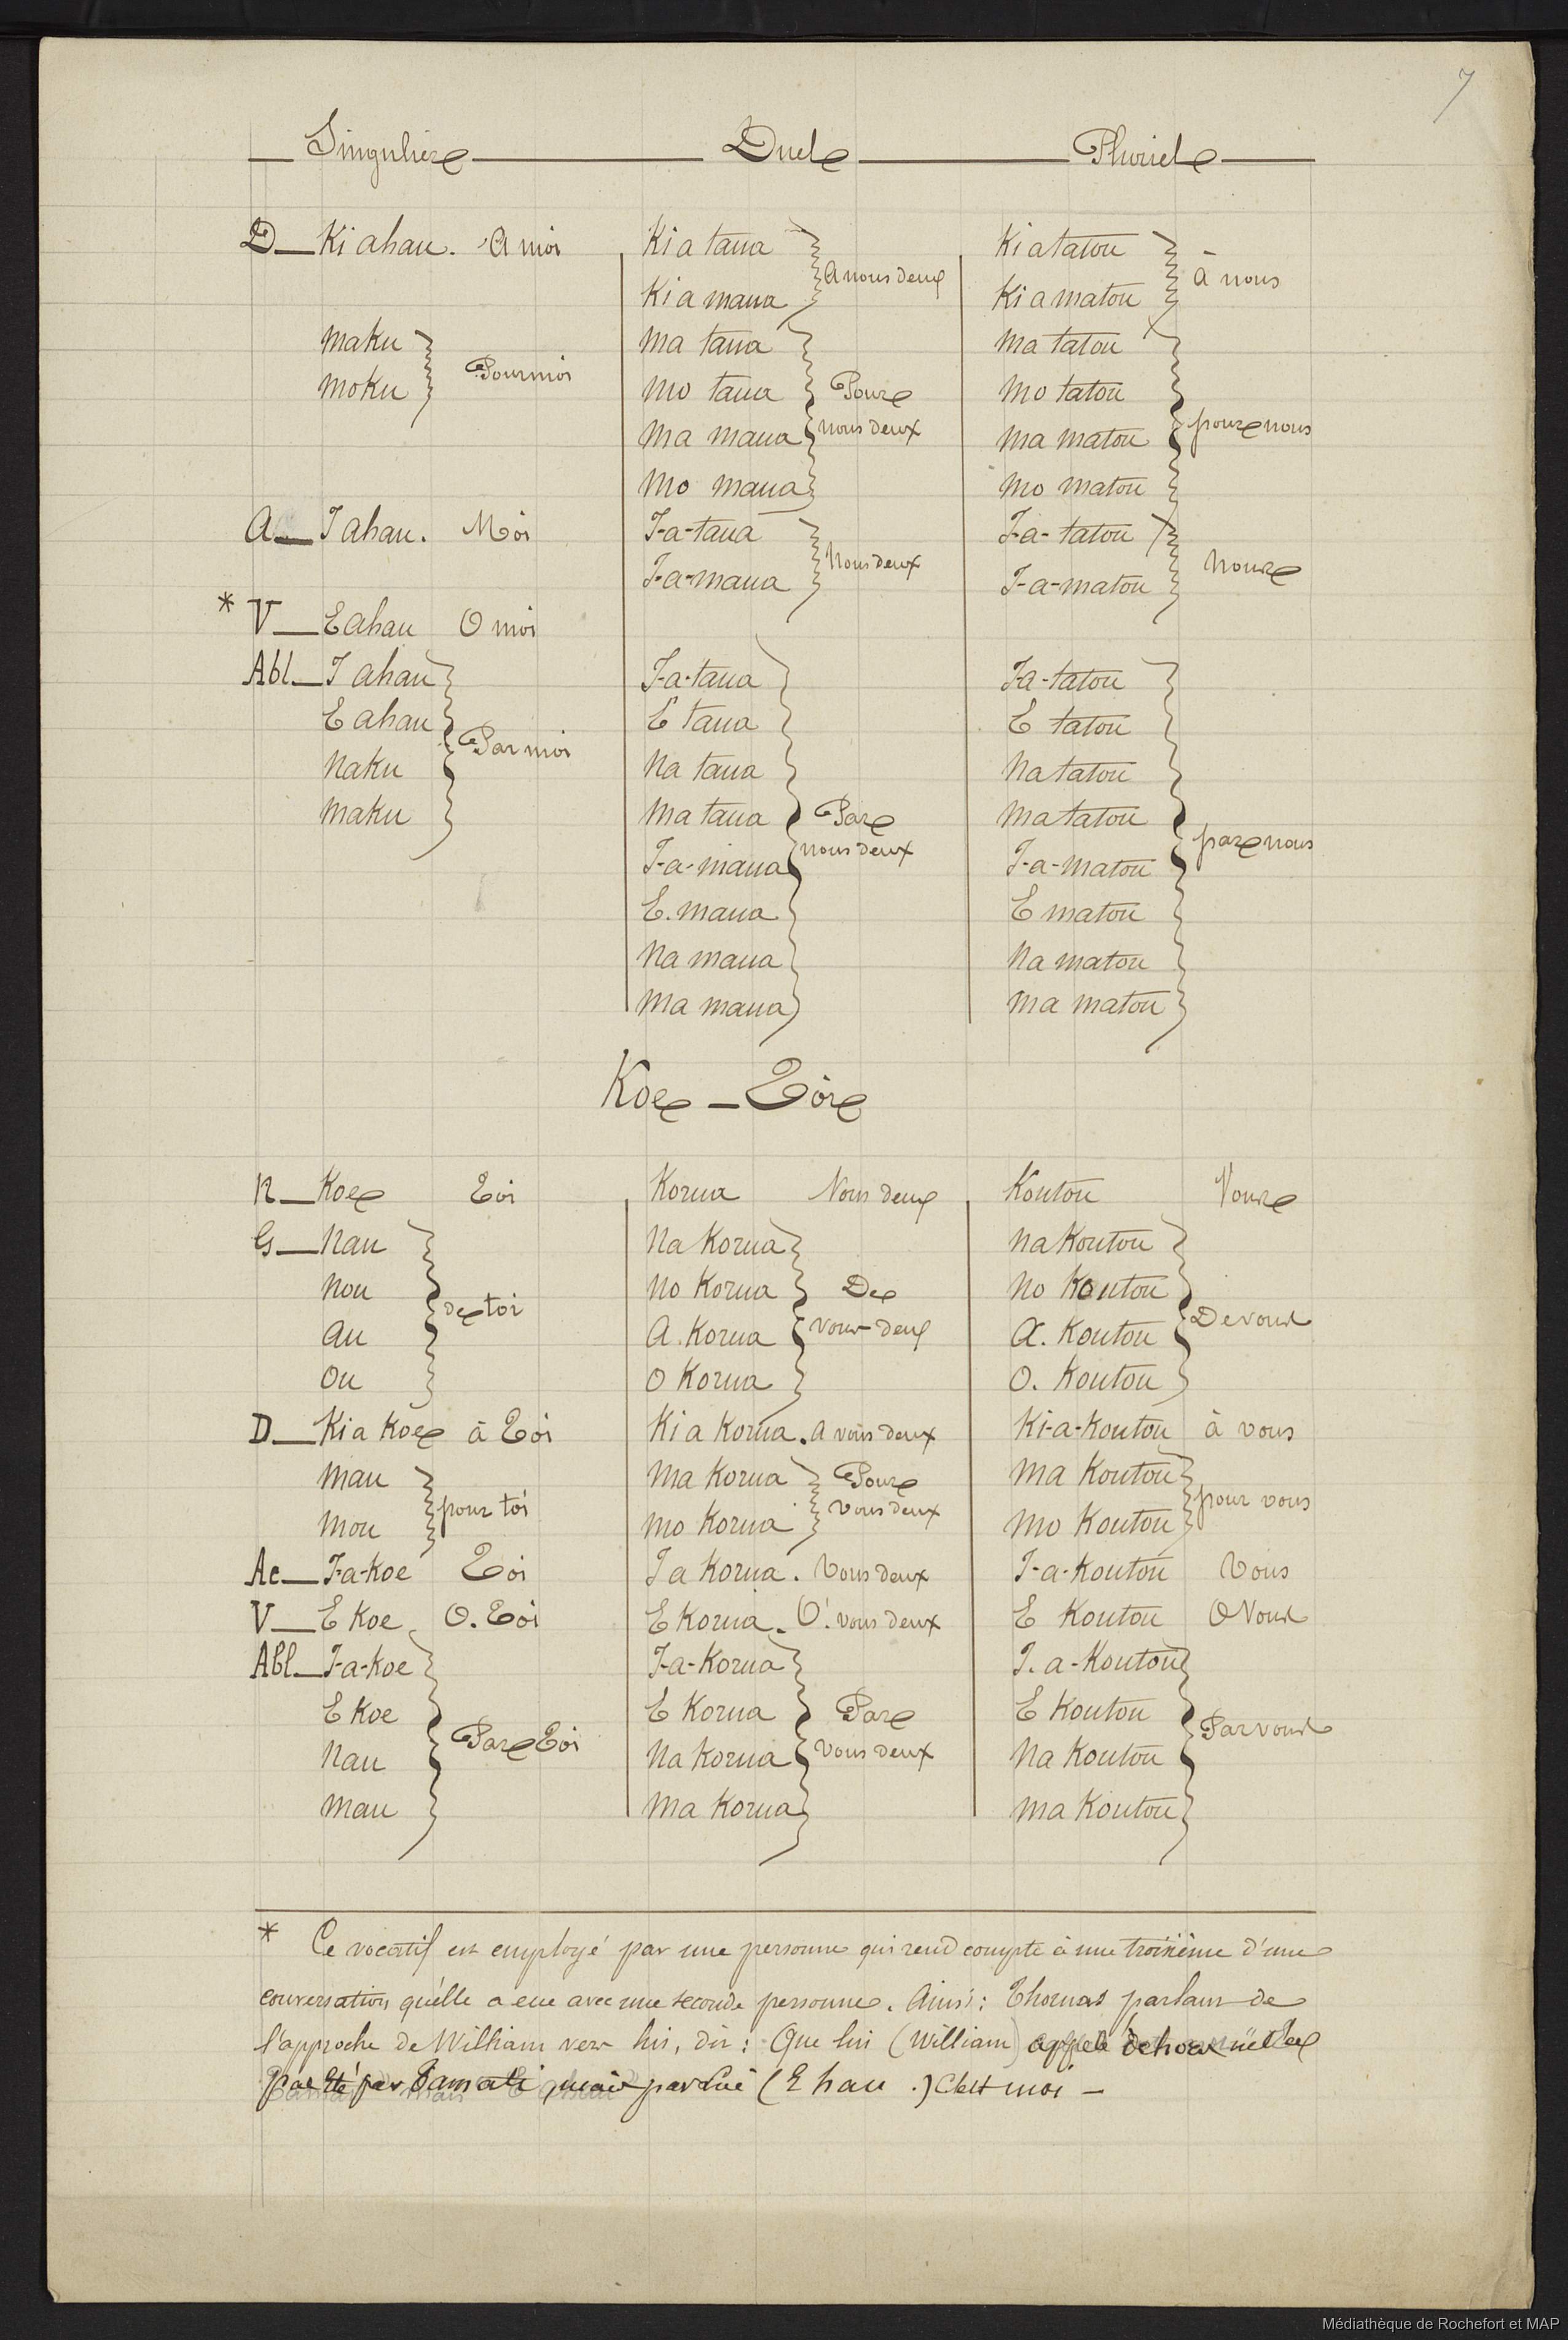 7
Singulier Duel Pluriel
D — Ki ahau. A moi Ki a taua Ki a tatou
A nous deux à nous
Ki a maua Ki a matou
Maku Ma taua Ma tatou
Pour moi
Moku Mo taua Pour Mo tatou
Ma maua nous deux Ma matou pour nous
Mo maua Mo matou
A — I ahau. Moi I-a-taua I-a-tatou
Nous deux Nous
I-a-maua I-a-matou
* V — E ahau O moi
Abl — I ahau I-a-taua I-a-tatou
E ahau E taua E tatou
Par moi
Naku Na taua Na tatou
Maku Ma taua Par Ma tatou
nous deux par nous
I-a-maua I-a-matou
E. maua E matou
Na maua Na matou
Ma maua Ma matou
Koe — Toi
N — Koe Toi Korua Vous deux Koutou Vous
G — Nau Na Korua Na Koutou
Nou No Korua De No Koutou
de toi De vous
Au A. Korua vous deux A. Koutou
Ou O Korua O. Koutou
D — Ki a Koe à Toi Ki a Korua. A vous deux Ki-a-Koutou à vous
Mau Ma Korua Pour Ma Koutou
pour toi vous deux pour vous
Mou Mo Korua Mo Koutou
Ac — I-a-Koe Toi I a Korua. Vous deux I-a-Koutou Vous
V — E Koe O. Toi E Korua. O! vous deux E Koutou O Vous
Abl — I-a-Koe I-a-Korua I. a-Koutou
E Koe E Korua Par E Koutou
Par Toi Par vous
Nau Na Korua Vous deux Na Koutou
Mau Ma Korua Ma Koutou
* Ce vocatif est employé par une personne qui rend compte à une troisième d'une
conversation qu'elle a eue avec une seconde personne. Ainsi: Thomas parlant de
l'approche de William vers lui, dit: Que lui (William) appela
par mais par lui (E hau.) C'est moi —
Médiathèque de Rochefort et MAP